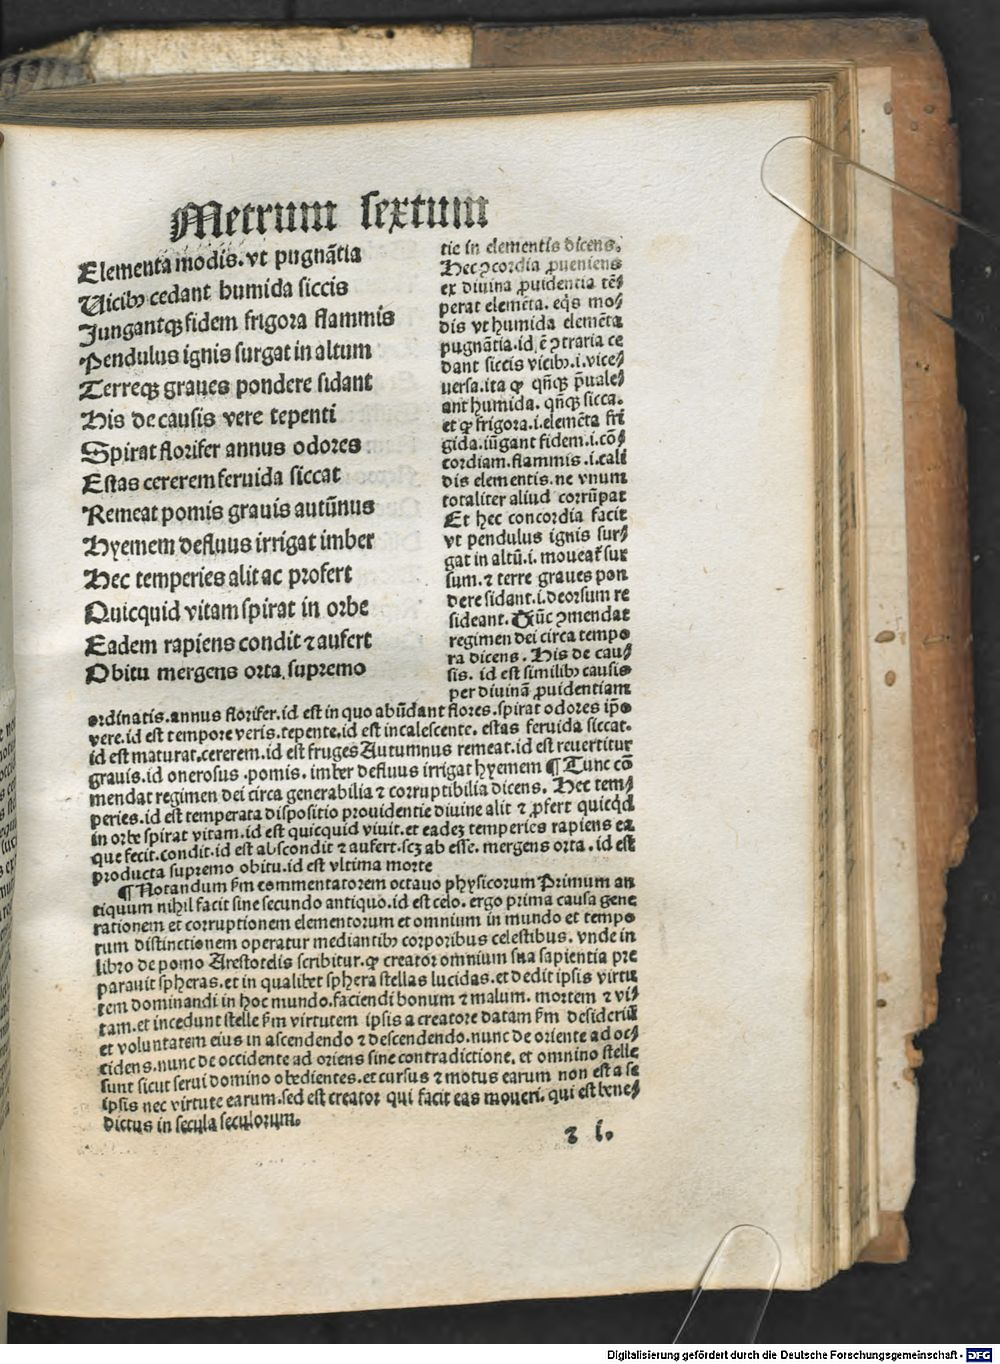 Metrum sextum
Elementa modis. vt pugnãtia
Uicibꝫ cedant humida siccis
Jungantqꝫ fidem frigora flammis
Pendulus ignis surgat in altum
Terreqꝫ graues pondere sidant
His de causis vere tepenti
Spirat florifer annus odores
Estas cererem feruida siccat
Remeat pomis grauis autũnus
Hyemem defluus irrigat imber
Hec temperies alit ac profert
Quicquid vitam spirat in orbe
Eadem rapiens condit ⁊ aufert
Obitu mergens orta supremo
tie in elementis dicens.
Hec ꝯcordia ꝓueniens
ex diuina ꝓuidentia tẽ⸗
perat elemẽta. eq̃s mo⸗
dis vt humida elemẽta
pugnãtia. id ẽ ꝯtraria ce
dant siccis vicibꝫ .i. vice⸗
uersa. ita ꝙ qñqꝫ p̃uale⸗
ant humida. qñqꝫ sicca.
et ꝙ frigora .i. elemẽta fri
gida. iũgant fidem .i. cõ⸗
cordiam. flammis .i. cali
dis elementis. ne vnum
totaliter aliud corrũpat
Et hec concordia facit
vt pendulus ignis sur⸗
gat in altũ .i. moueat̃ sur
sum. ⁊ terre graues pon
dere sidant .i. deorsum re
sideant. Tũc ꝯmendat
regimen dei circa tempo
ra dicens. His de cau⸗
sis. id est similibꝫ causis
per diuinã ꝓuidentiam
ordinatis. annus florifer. id est in quo abũdant flores. spirat odores ip̃o
vere. id est tempore veris. tepente. id est incalescente. estas feruida siccat.
id est maturat. cererem. id est fruges Autumnus remeat. id est reuertitur
grauis. id onerosus. pomis. imber defluus irrigat hyemem ¶ Tunc cõ
mendat regimen dei circa generabilia ⁊ corruptibilia dicens. Hec tem⸗
peries. id est temperata dispositio prouidentie diuine alit ⁊ ꝓfert quicq̃d
in orbe spirat vitam. id est quicquid viuit. et eadeꝫ temperies rapiens ea
que fecit. condit. id est abscondit ⁊ aufert. scꝫ ab esse. mergens orta. id est
producta supremo obitu. id est vltima morte
¶ Notandum ẜm commentatorem octauo physicorum Primum an
tiquum nihil facit sine secundo antiquo. id est celo. ergo prima causa gene
rationem et corruptionem elementorum et omnium in mundo et tempo
rum distinctionem operatur mediantibꝫ corporibus celestibus. vnde in
libro de pomo Arestotelis scribitur. ꝙ creator omnium sua sapientia pre
parauit spheras. et in qualibet sphera stellas lucidas. et dedit ipsis virtu
tem dominandi in hoc mundo. faciendi bonum ⁊ malum. mortem ⁊ vi⸗
tam. et incedunt stelle ẜm virtutem ipsis a creatore datam ẜm desideriũ
et voluntatem eius in ascendendo ⁊ descendendo. nunc de oriente ad oc⸗
cidens. nunc de occidente ad oriens sine contradictione. et omnino stelle
sunt sicut serui domino obedientes. et cursus ⁊ motus earum non est a se
ipsis nec virtute earum. sed est creator qui facit eas moueri. qui est bene⸗
dictus in secula seculorum.
z i.
Digitalisierung gefördert durch die Deutsche Forschungsgemeinschaft - DFG